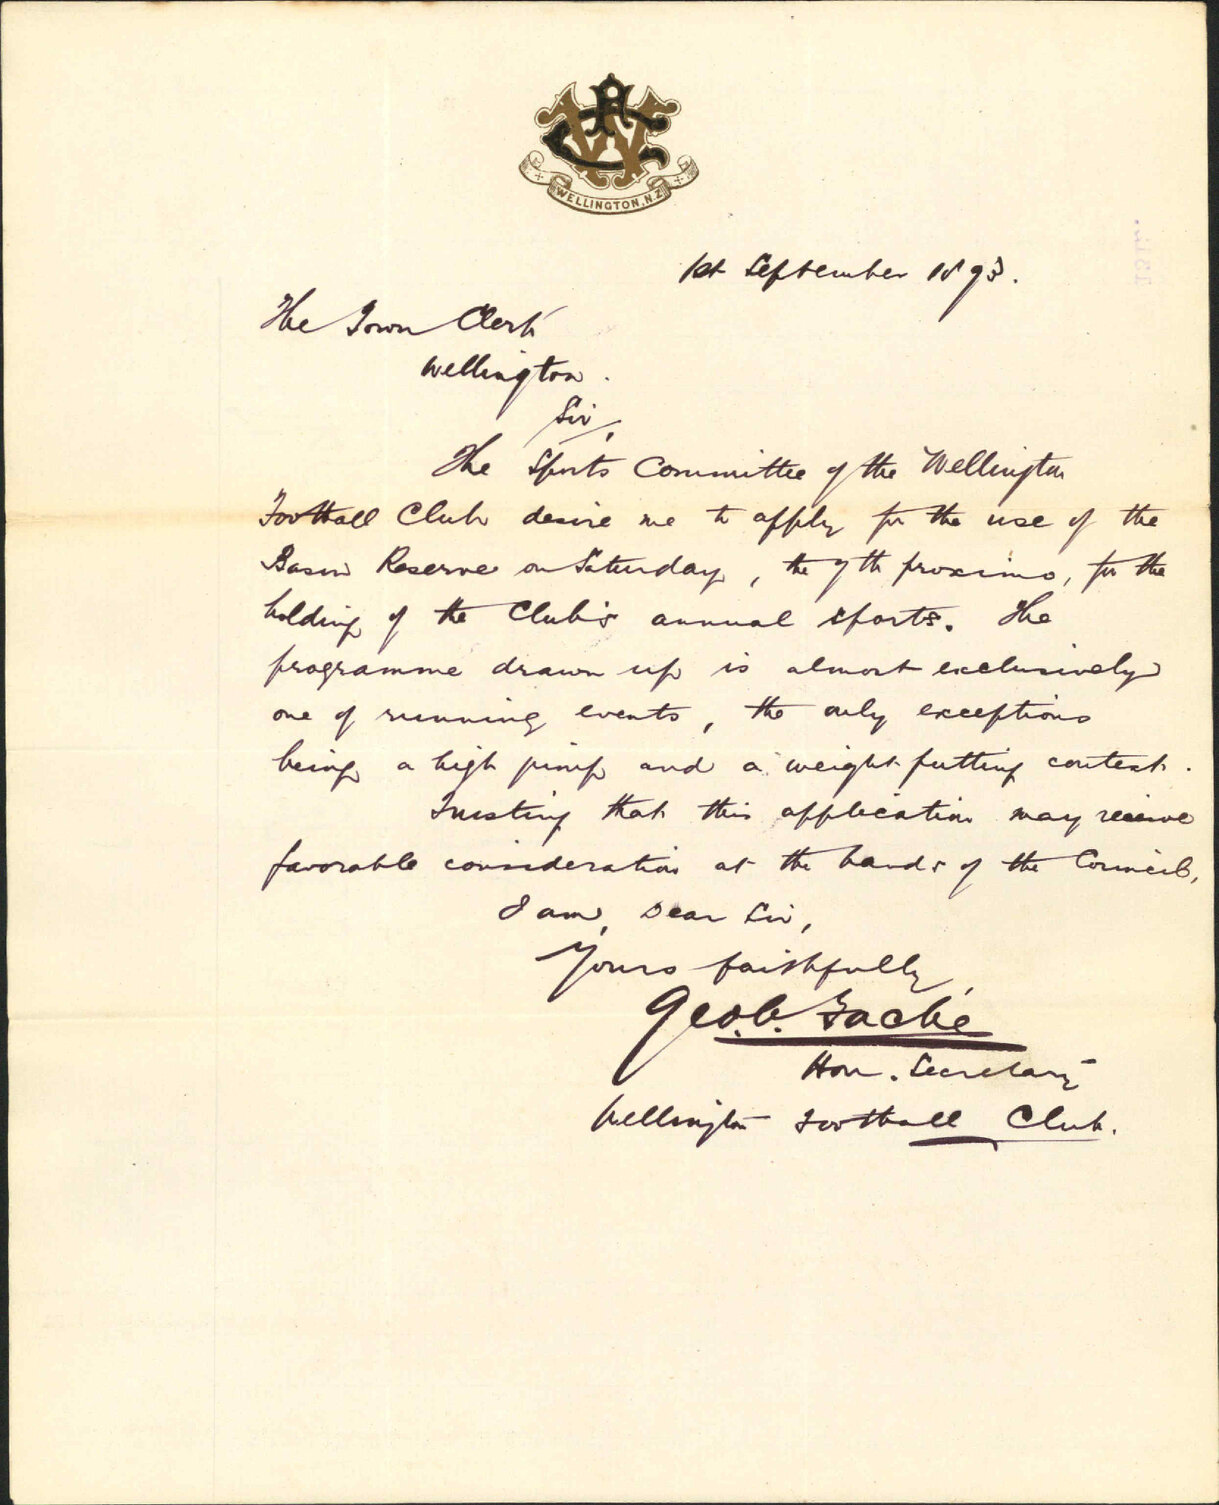 WELLINGTON, N.Z.
1st September 1893.
The Town Clerk
Wellington.
Sir,
The Sports Committee of the Wellington
Football Club desire me to apply for the use of the
Basin Reserve on Saturday, the 7th proximo, for the
holding of the Club's annual sports. The
programme drawn up is almost exclusively
one of running events, the only exceptions
being a high jump and a weight putting contest.
Trusting that this application may receive
favorable consideration at the hands of the Council,
I am, Dear Sir,
Yours faithfully,
Geo.
Hon. Secretary
Wellington Football Club.